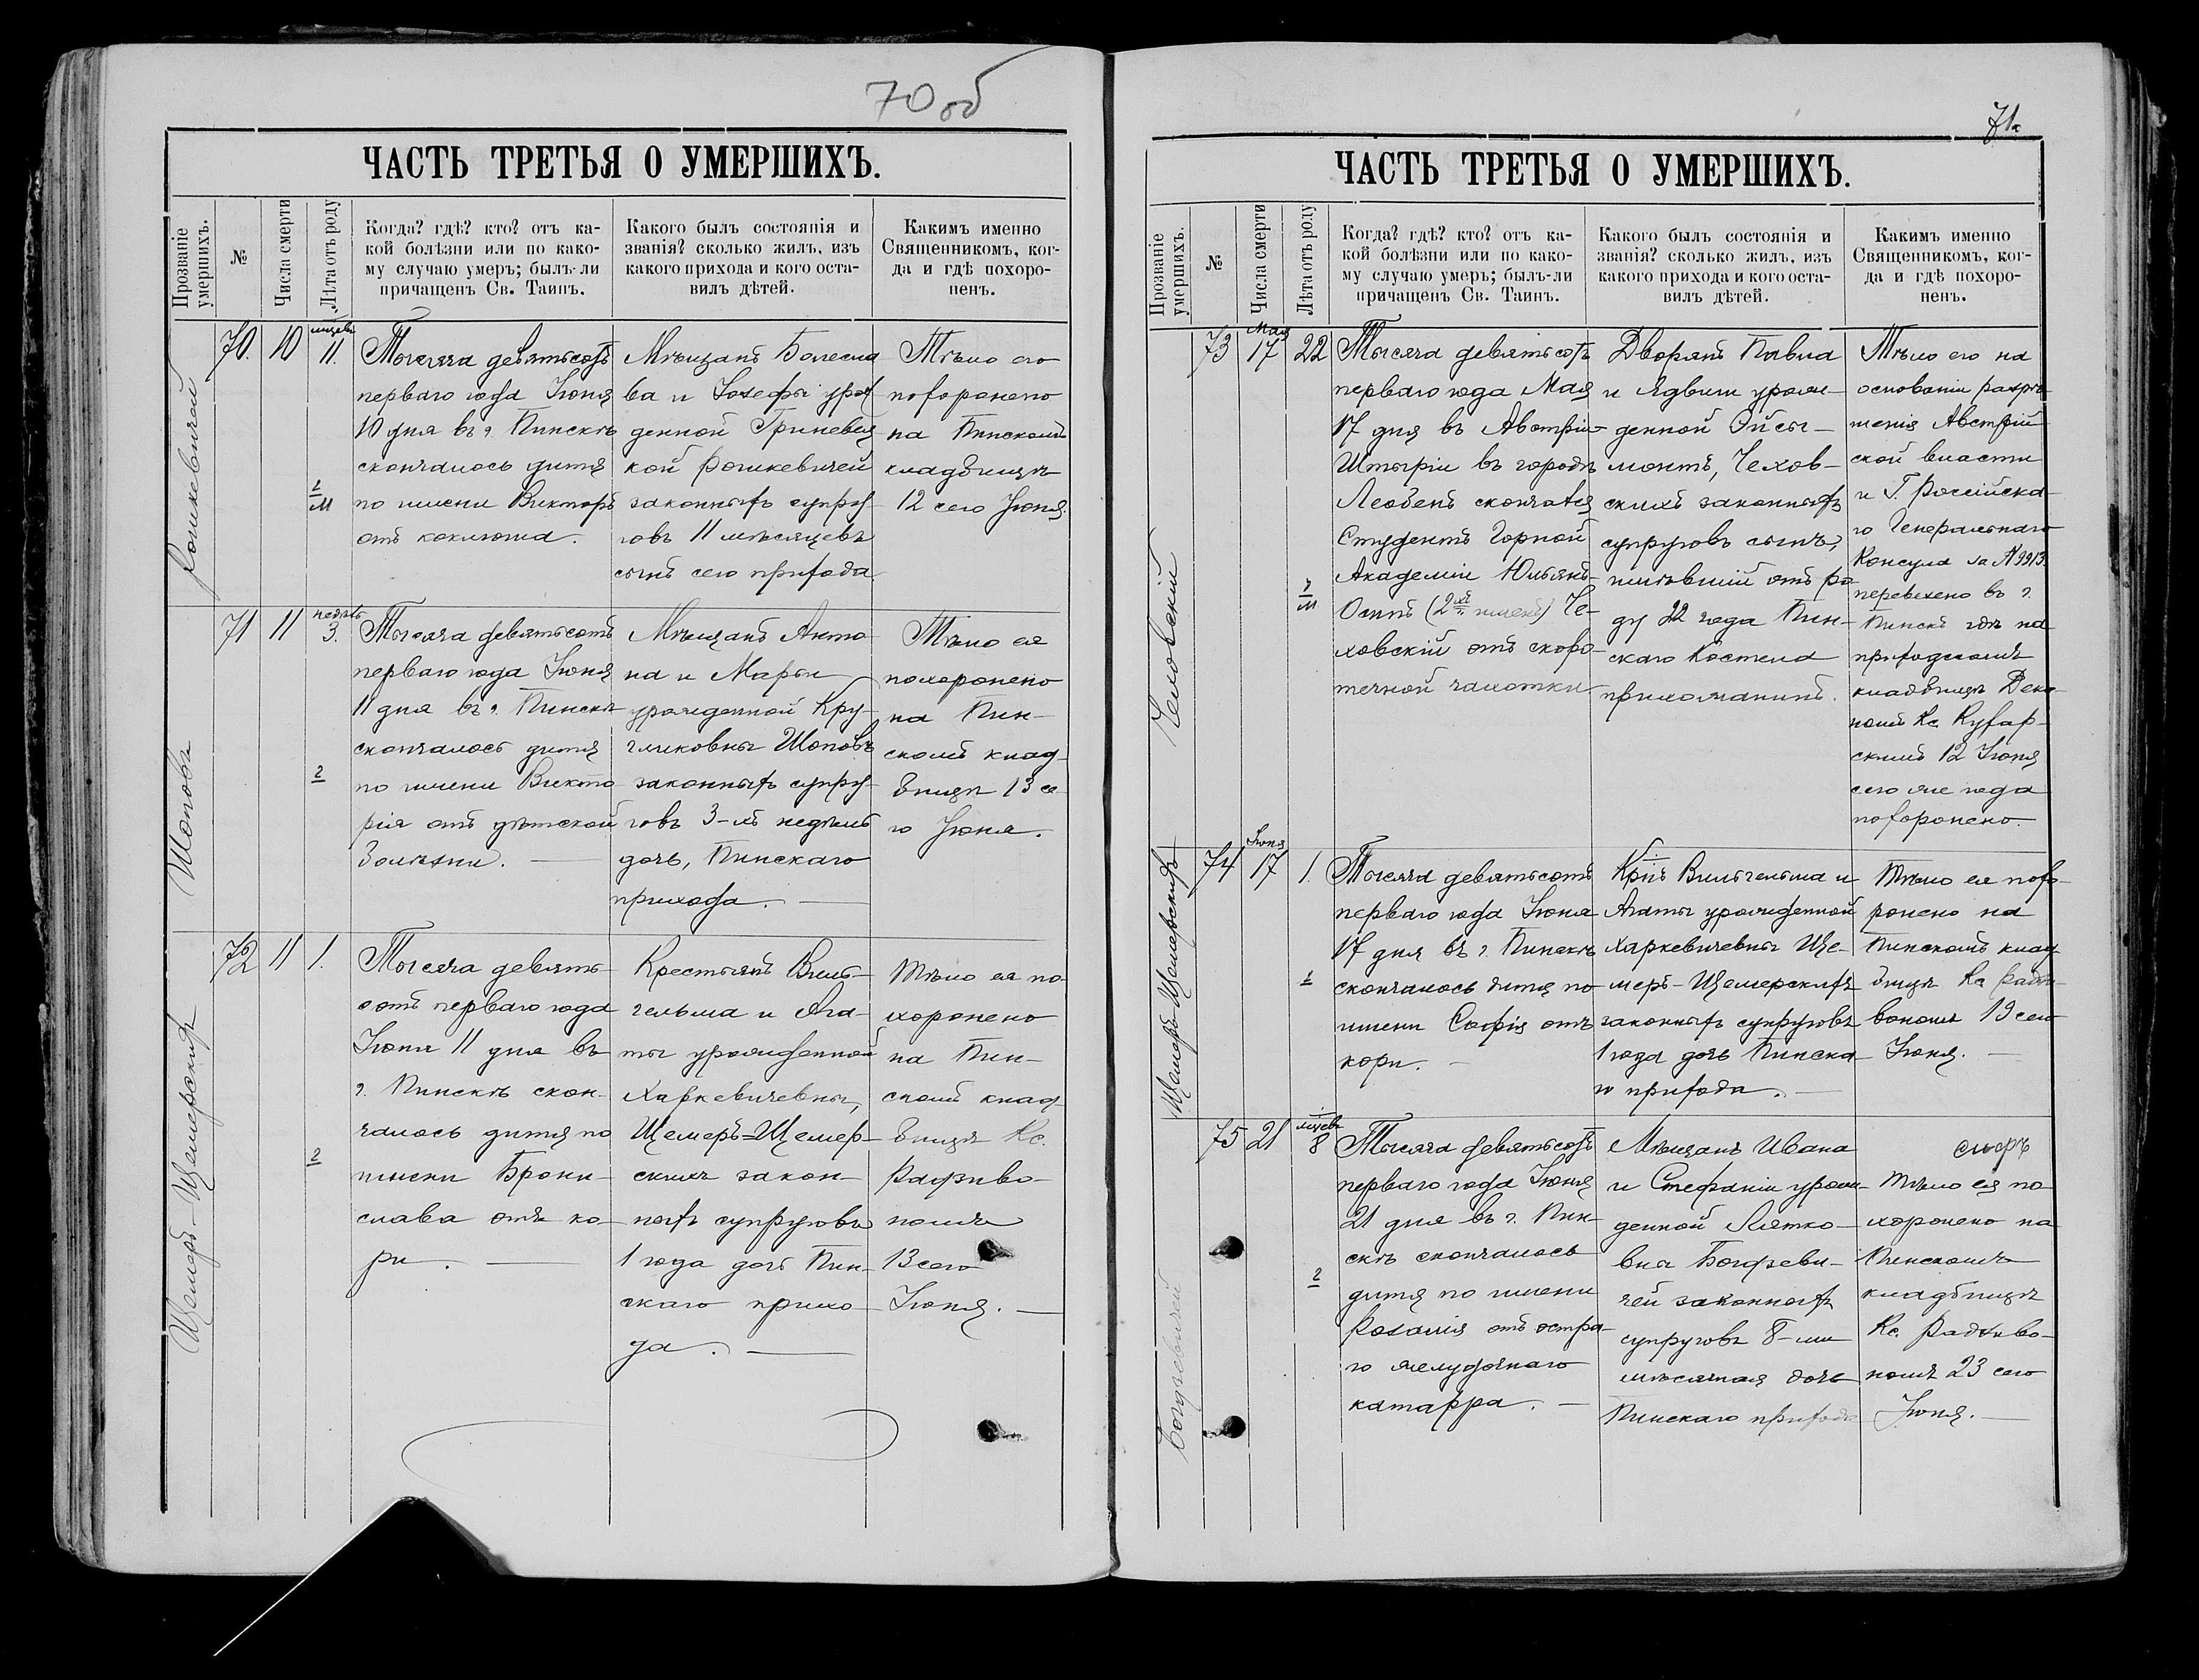 70 об
ЧАСТЬ ТРЕТЬЯ О УМЕРШИХЪ.
Прозваніе умершихъ.
№
Числа смерти
Лѣта отъ роду
Когда? гдѣ? кто? отъ ка-
кой болѣзни или по како-
му случаю умеръ; былъ-ли
причащенъ Св. Таинъ.
Какого былъ состоянія и
званія? сколько жилъ, изъ
какого прихода и кого оста-
вилъ дѣтей.
Какимъ именно
Священникомъ, ког-
да и гдѣ похоро-
ненъ.
70.
10
11.
Тысяча девятьсотъ
перваго года Іюня
10 дня въ г. Пинскѣ
скончалось дитя
по имени Викторъ
отъ коклюша.
Мѣщанъ Болесла
ва и Іозефы урож
денной Гриневец
кой Рошкевичей
законныхъ супру
говъ 11 мѣсяцевъ
сынъ сего прихода
Тѣло его
похоронено
на Пинскомъ
кладбищѣ
12 сего Іюня.
Шоповъ
71
11
недѣль
3.
2
Тысяча девятьсотъ
перваго года Іюня
11 дня въ г. Пинскѣ
скончалось дитя
по имени Викто
рія отъ дѣтской
болѣзни.
Мѣщанъ Анто
на и Марьи
урожденной Кру-
гликовны Шоповъ
законныхъ супру-
говъ 3-хъ недѣль
дочь, Пинскаго
прихода.
Тѣло ея
похоронено
на Пин-
скомъ клад-
бищѣ 13 се
го Іюня.
Щемеръ-Щемерскихъ
72
11
1.
2
Тысяча девять-
сотъ перваго года
Іюня 11 дня въ
г. Пинскѣ скон-
чалось дитя по
имени Брони-
слава отъ ко-
ри.
Крестьянъ Виль-
гельма и Ага-
ты урожденной
Харкевичевны,
Щемеръ=Щемер-
скихъ закон-
ныхъ супруговъ
1 года дочь Пин-
скаго прихо-
да.
Тѣло ея по-
хоронено
на Пин-
скомъ клад-
бищѣ Кс.
Радзиво-
номъ
13 сего
Іюня.
71
ЧАСТЬ ТРЕТЬЯ О УМЕРШИХЪ.
Прозваніе умершихъ.
№
Числа смерти
Лѣта отъ роду
Когда? гдѣ? кто? отъ ка-
кой болѣзни или по како-
му случаю умеръ; былъ-ли
причащенъ Св. Таинъ.
Какого былъ состоянія и
званія? сколько жилъ, изъ
какого прихода и кого оста-
вилъ дѣтей.
Какимъ именно
Священникомъ, ког-
да и гдѣ похоро-
ненъ.
Чеховскій
73
Мая
17
22
Тысяча девятьсотъ
перваго года Мая
17 дня въ Австріи-
Штыріи въ городѣ
Леобенъ скончался
Студентъ Горной
Академіи Юльянъ-
Осипъ (2хъ именъ) Че-
ховскій отъ скоро-
течной чахотки
Дворянъ Павла
и Ядвиги урож-
денной
Чехов-
скихъ законныхъ
супруговъ сынъ,
имѣвшій отъ ро-
ду 22 года Пин-
скаго Костела
прихожанинъ.
Тѣло его на
основаніи разрѣ-
шенія Австрій
ской власти
и Г. Россійска-
го Генеральнаго
Консула за №9913.
перевезено въ г.
Пинскъ гдѣ на
приходскомъ
кладбищѣ Дека-
номъ Кс. Кухар-
скимъ 12 Іюня
сего же года
похоронено.
74
Іюня
17
1.
2
Тысяча девятьсотъ
перваго года Іюня
17 дня въ г. Пинскѣ
скончалось дитя по
имени Софія отъ
кори.
Кр:нъ Вильгельма и
Агаты урожденной
Харкевичевны Ще-
меръ-Щемерскихъ
законныхъ супруговъ
1 года дочь Пинска-
го прихода.
Тѣло ея похо-
ронено на
Пинскомъ клад-
бищѣ Кс. Радзи-
вономъ 19 сего
Іюня.
75
21
8
2
Тысяча девятьсотъ
перваго года Іюня
21 дня въ г. Пин-
скѣ скончалось
дитя по имени
Розалія отъ остра-
го желудочнаго
катарра.
Мѣщанъ Ивана
и Стефаніи урож-
денной Лятко-
вны Богдзеви-
чей законныхъ
супруговъ 8-ми
мѣсячная дочь
Пинскаго прихода
Тѣло ея по-
хоронено на
Пинскомъ
кладбищѣ
Кс. Радзиво-
номъ 23 сего
Іюня.